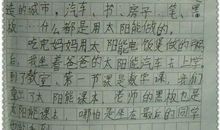 造的城市，汽车、书、房子、笔、黑
板……什么都是用太阳能做的。
吃完妈妈用太阳能电饭煲做的早饭
后，我坐着爸爸的太阳能汽车去上学，
到了教室，第一节课是数学课，我们
拿出了太阳能课本，老师的黑板也是
太阳能课上，哪怕是坐在最后的同学